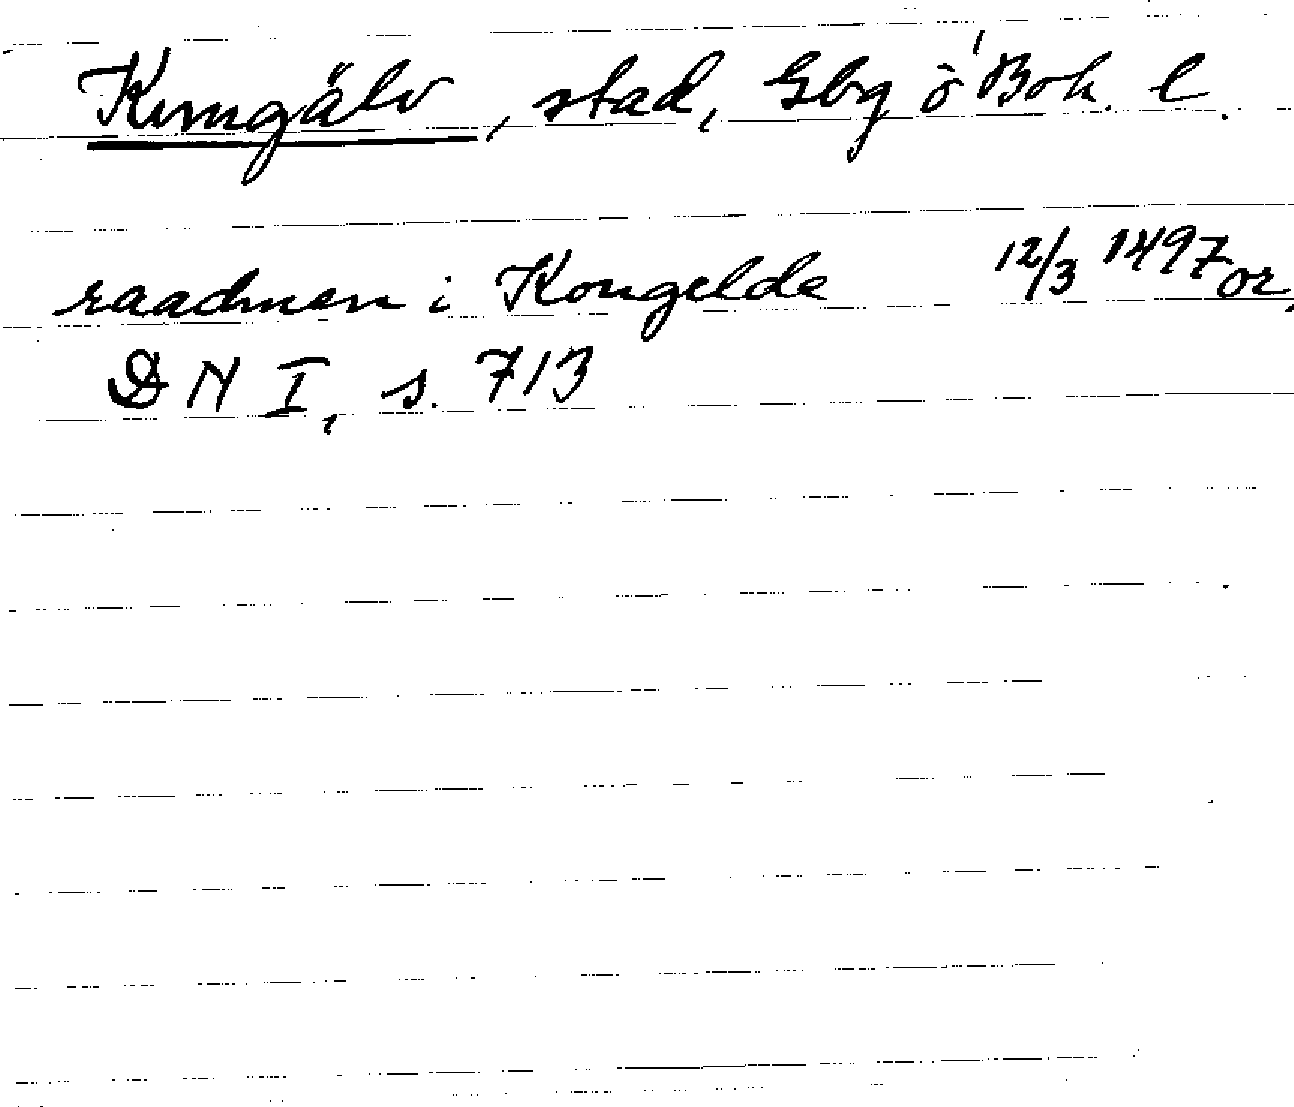 Kungälv, stad, Gbg o Boh. l.
raadmen i Kongelde 12/3 1497 or.
DN I, s. 713